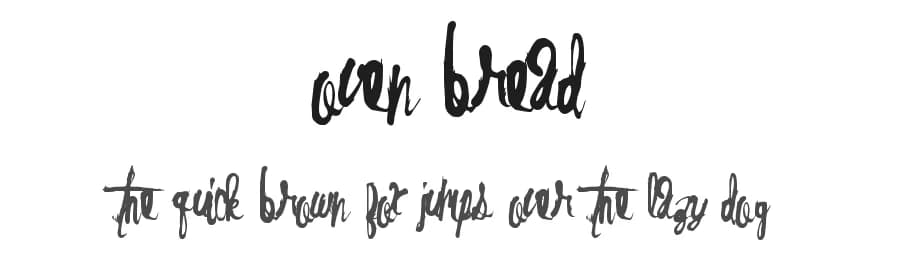 oven bread
the quick brown fox jumps over the lazy dog